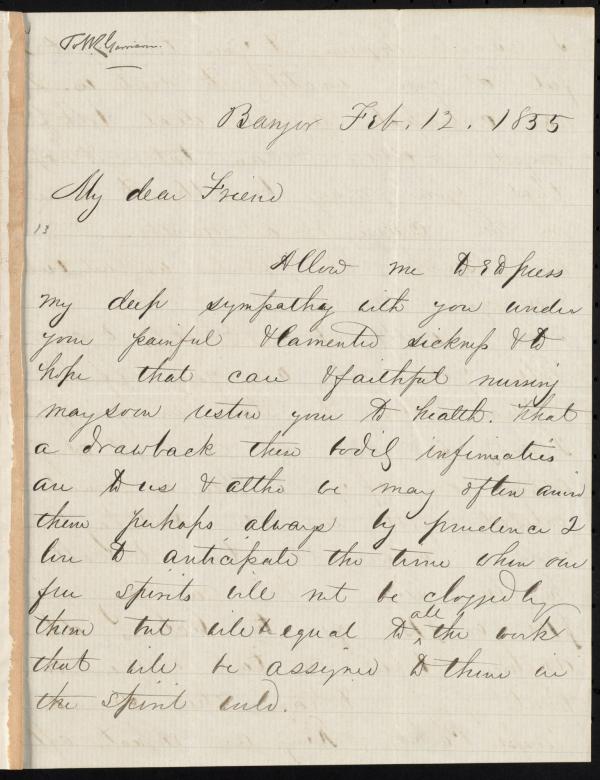 To W. L. Garrison.
Bangor Feb. 12. 1855
My dear Friend
13
Allow me to express
my deep sympathy with you under
your painful & lamented sickness & to
hope that care & faithful nursing
may soon restore you to health. What
a drawback these bodily infirmities
are to us & altho we may often avoid
them perhaps always by prudence I
love to anticipate the time when our
free spirits will not be clogged by
them but will equal to all the work
that will be assigned to them in
the spirit world.